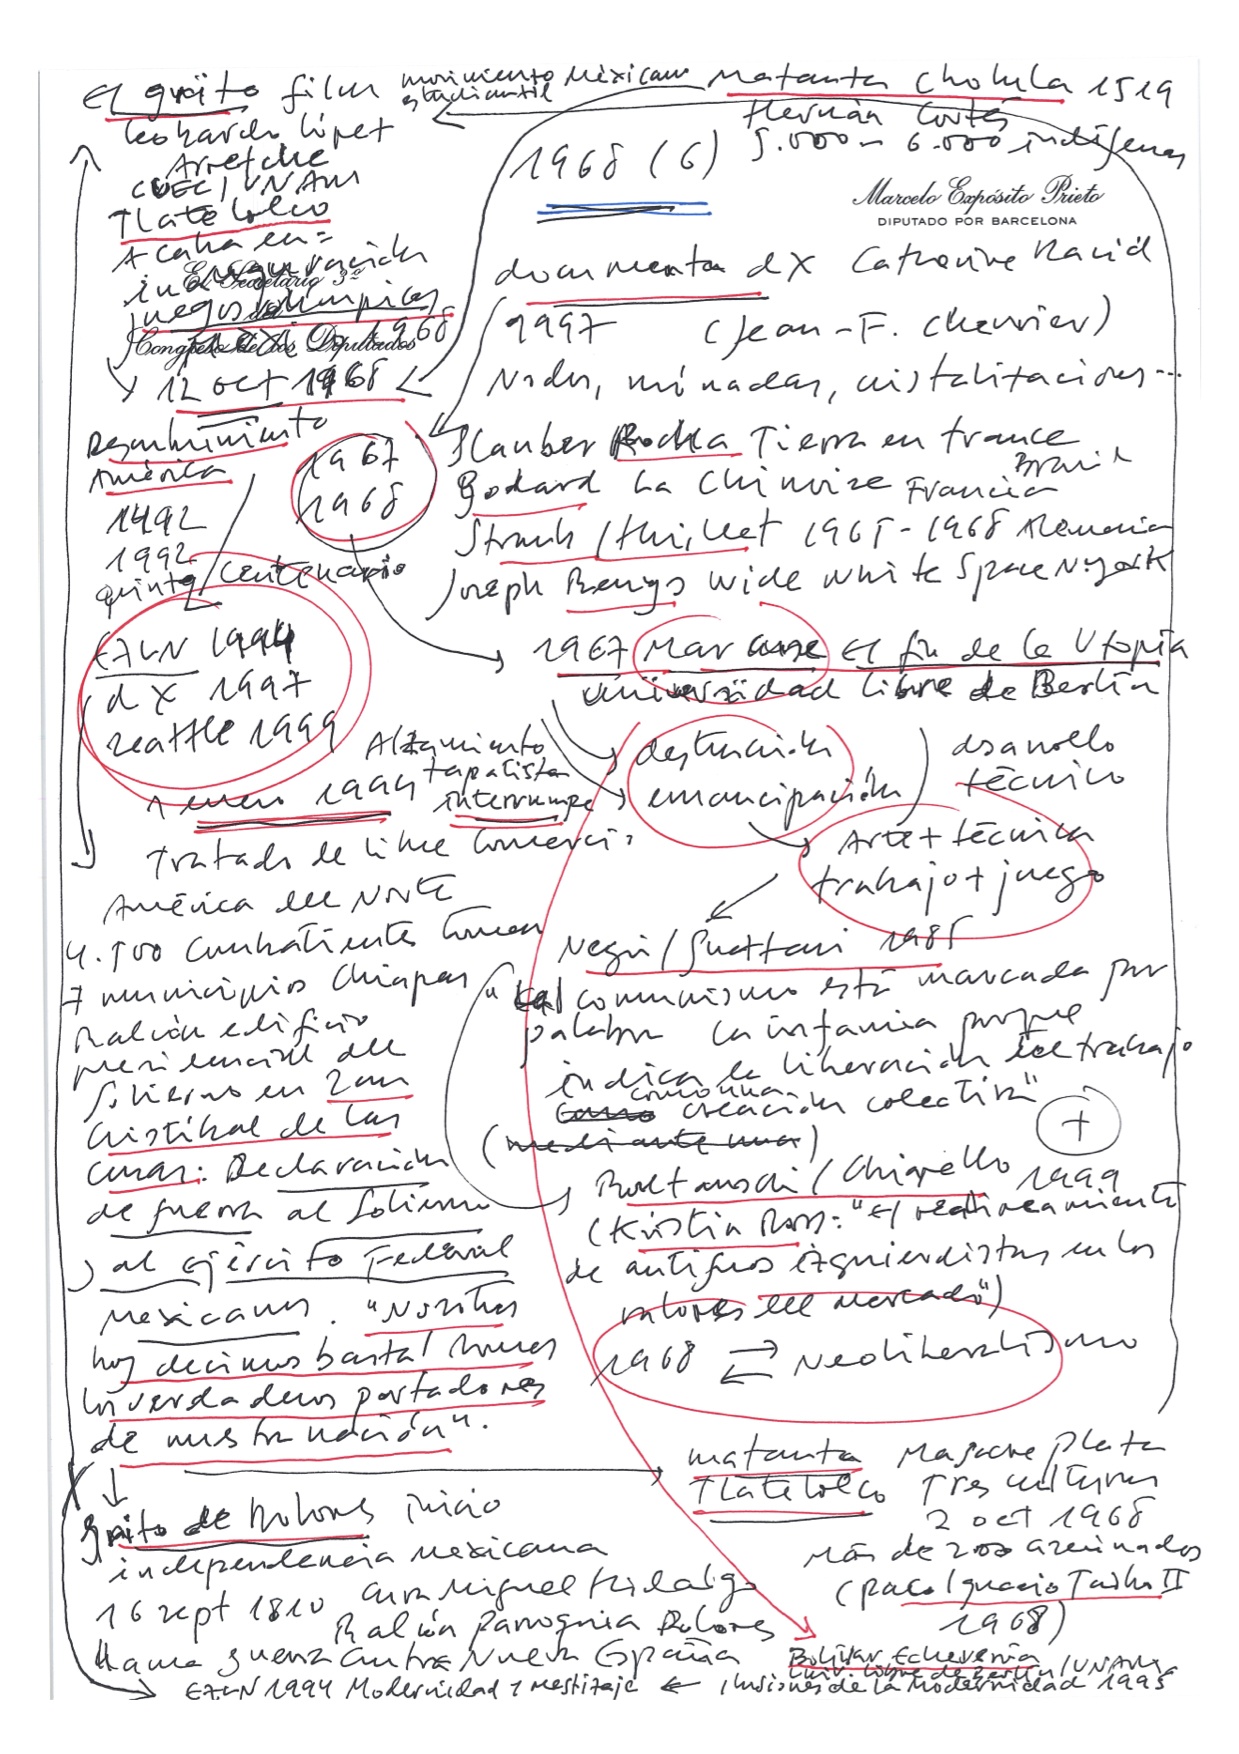 El grito film movimiento Mexicano
estudiantil
Leonardo López
Arretche
CUEC / UNAM
Tlatelolco
Acaba en =
inauguración
juegos olímpicos
1968
12 oct 1968
El Secretario 3º
del
Congreso de los Diputados
Matanza Cholula 1519
Hernán Cortés
5.000 - 6.000 indígenas
1968 (6)
Marcelo Expósito Prieto
DIPUTADO POR BARCELONA
documenta dX Catherine David
1997 (Jean-F. Chevrier)
Nodos, minadas, cristalizaciones...
1967
1968
Glauber Rocha Tierra en trance
Brasil
Godard La Chinoise Francia
Straub / Huillet 1965 - 1968 Alemania
Joseph Beuys Wide White Space N.York
Descubrimiento
América
1492
1992
quinto centenario
EZLN 1994
dX 1997
Seattle 1999
1967 Marcuse El fin de la Utopía
Universidad Libre de Berlín
destrucción
emancipación
desarrollo
técnico
Arte + técnica
trabajo + juego
1 enero 1994 Alzamiento
zapatista
interrumpe
Tratado de Libre Comercio
América del Norte
4.500 combatientes toman
7 municipios Chiapas
Balcón edificio
presidencial del
Gobierno en San
Cristóbal de las
Casas: Declaración
de guerra al Gobierno
y al Ejército Federal
Mexicano. "Nosotros
hoy decimos basta! Somos
los verdaderos portadores
de nuestra nación".
Negri / Guattari 1985
"comunismo está marcada por
palabra la infamia porque
indica la liberación del trabajo
como una
creación colectiva"
(mediante una)
+
Boltanski / Chiapello 1999
(Kristin Ross: "El realineamiento
de antiguos izquierdistas en los
valores del mercado")
1968 Neoliberalismo
Matanza Masacre Plaza
Tlatelolco Tres culturas
2 oct 1968
Más de 200 asesinados
(Paco Ignacio Taibo II
1968)
Grito de Dolores inicio
independencia mexicana
16 sept 1810 cura Miguel Hidalgo
Balcón Parroquia Dolores
llama guerra contra Nueva España
Bolívar Echeverría
Univ. Libre de Berlín / UNAM
EZLN 1994 Modernidad y mestizaje ← Ilusiones de la Modernidad 1995